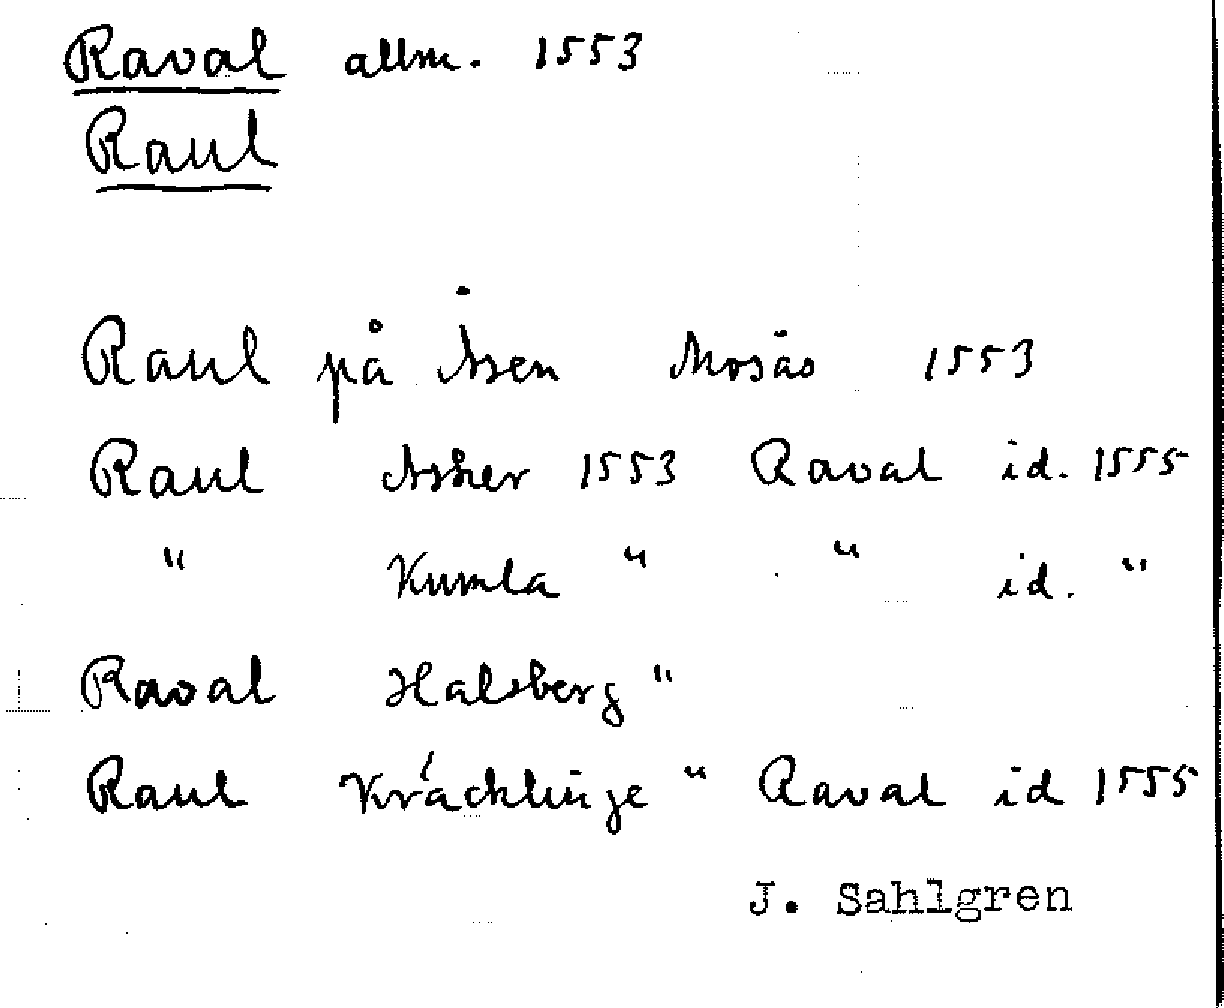 Raval allm. 1553
Raul
Raul på Åsen Mosås 1553
Raul Asker 1553 Raval id. 1555
" Kumla " " id. "
Raval Halsberg "
Raul Kräcklinge " Raval id 1555
J. Sahlgren